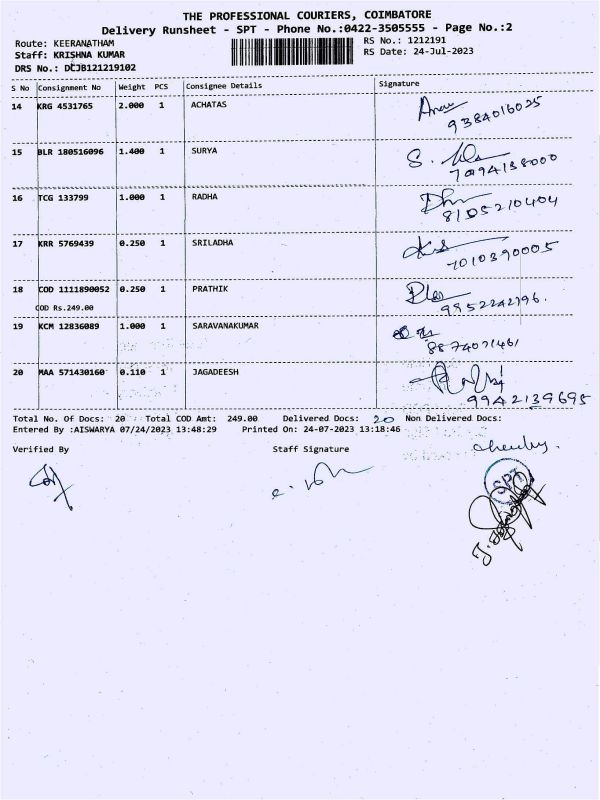 THE PROFESSIONAL COURIERS, COIMBATORE
Delivery Runsheet - SPT - Phone No.:0422-3505555 - Page No.:2
Route: KEERANATHAM RS No.: 1212191
Staff: KRISHNA KUMAR RS Date: 24-Jul-2023
DRS No.: DCJB121219102
S No Consignment No Weight PCS Consignee Details Signature
14 KRG 4531765 2.000 1 ACHATAS
9384016025
15 BLR 180516096 1.400 1 SURYA
7094138000
16 TCG 133799 1.000 1 RADHA
8105210404
17 KRR 5769439 0.250 1 SRILADHA
7010390005
18 COD 1111890052 0.250 1 PRATHIK
COD Rs.249.00 9952242196.
19 KCM 12836089 1.000 1 SARAVANAKUMAR
8874071461
20 MAA 571430160 0.110 1 JAGADEESH
9942139695
Total No. Of Docs: 20 Total COD Amt: 249.00 Delivered Docs: 20 Non Delivered Docs:
Entered By :AISWARYA 07/24/2023 13:48:29 Printed On: 24-07-2023 13:18:46
Verified By Staff Signature
SPT